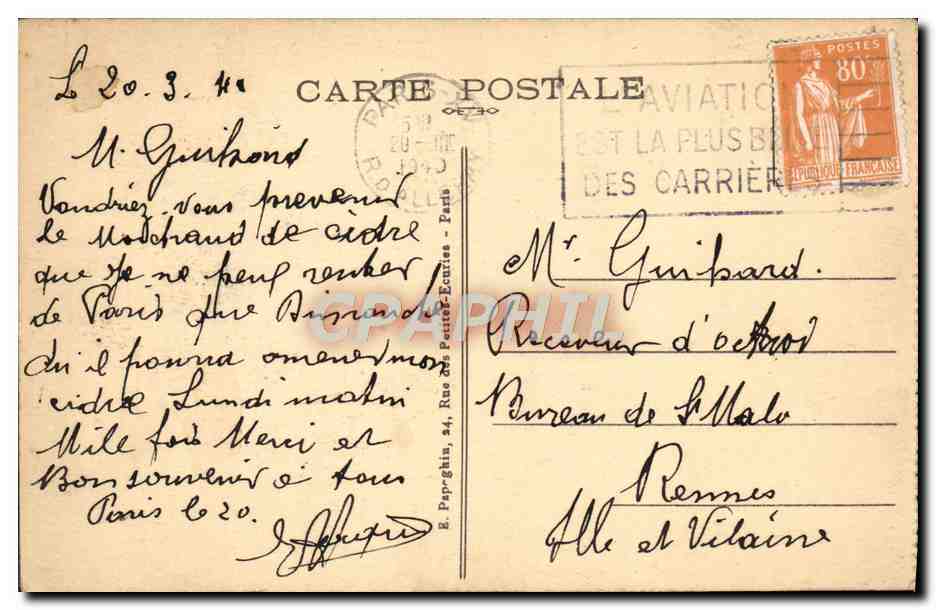 Le 20.3.40
CARTE POSTALE
PARIS
20 - III
1940
L'AVIATION
EST LA PLUS BELLE
DES CARRIÈRES
POSTES
80c
REPUBLIQUE FRANÇAISE
M. Guibard
Voudriez vous prevenir
le Marchand de cidre
que Je ne peux rentrer
de Paris que Dimanche
qu'il pourra amener mon
cidre Lundi matin
Mile fois Merci et
Bon souvenir a tous
Paris le 20.
E. Papeghin, 24, Rue des Petites-Ecuries - Paris
Mr Guibard.
Receveur d'octroi
Bureau de St Malo
Rennes
Ille et Vilaine
CPAPHIL